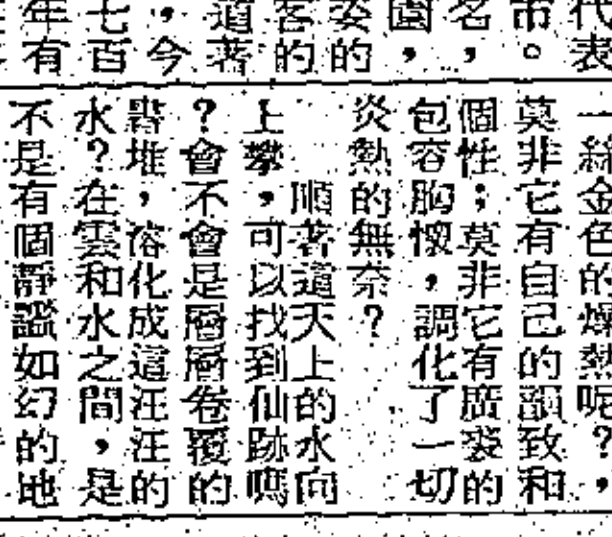 代表
市。
名，
園，
姿的
客的
道著
，今
七百
年有
一絲金色的燥熱呢？，
莫非它有自己的韻致和
個性；莫非它有廣袤的
包容胸懷，調化了一切
炎熱的無奈？
順著道天上的水向
上攀，可以找到仙跡嗎
？會不會是層層卷覆的
堆，溶化成這汪汪的
水？在雲和水之間，是
不是有個靜謐如幻的地